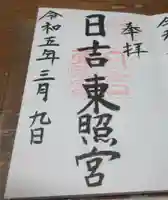 奉拝
日吉東照宮
令和五年三月九日